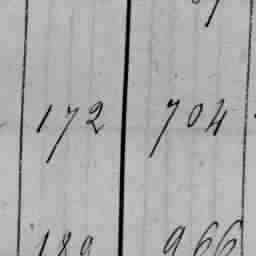 172 704
189 966